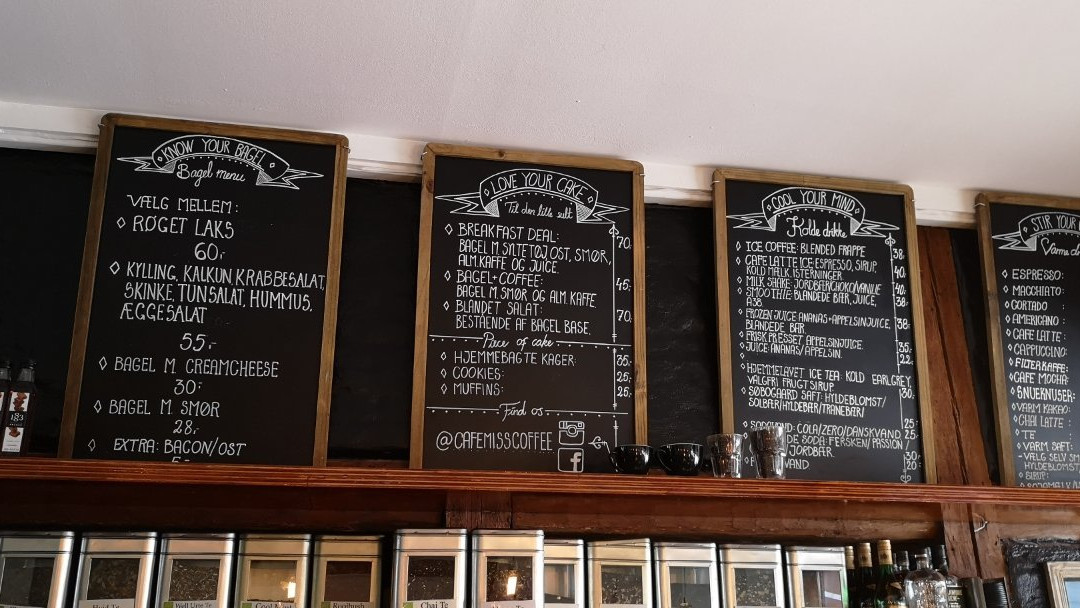 KNOW YOUR BAGEL
Bagel menu
VÆLG MELLEM:
◊ RØGET LAKS
60,-
◊ KYLLING, KALKUN, KRABBESALAT,
SKINKE, TUNSALAT, HUMMUS,
ÆGGESALAT
55,-
◊ BAGEL M. CREAMCHEESE
30,-
◊ BAGEL M. SMØR
28,-
◊ EXTRA: BACON/OST
LOVE YOUR CAKE
Til den lille sult
◊ BREAKFAST DEAL: 70,-
BAGEL M. SYLTETØJ, OST, SMØR,
ALM. KAFFE OG JUICE.
◊ BAGEL+COFFEE: 45,-
BAGEL M. SMØR OG ALM. KAFFE
◊ BLANDET SALAT: 70,-
BESTÅENDE AF BAGEL BASE.
Piece of cake
◊ HJEMMEBAGTE KAGER: 35,-
◊ COOKIES: 25,-
◊ MUFFINS: 25,-
Find os
@CAFEMISSCOFFEE
COOL YOUR MIND
Kolde drikke
◊ ICE COFFEE: BLENDED FRAPPE 38,-
◊ CAFE LATTE ICE: ESPRESSO, SIRUP, 40,-
KOLD MÆLK, ISTERNINGER.
◊ MILK SHAKE: JORDBÆR/CHOKO/VANILIE 40,-
◊ SMOOTHIE: BLANDEDE BÆR, JUICE, 38,-
A38.
◊ FROZEN JUICE: ANANAS+APPELSINJUICE, 38,-
BLANDEDE BÆR
◊ FRISK PRESSET APPELSINJUICE. 35,-
◊ JUICE: ANANAS/APPELSIN. 22,-
◊ HJEMMELAVET ICE TEA: KOLD EARLGREY,
VALGFRI FRUGTSIRUP. 30,-
◊ SØBOGAARD SAFT: HYLDEBLOMST/
SOLBÆR/HYLDEBÆR/TRANEBÆR/
COLA/ZERO/DANSKVAND. 25,-
DE SODA: FERSKEN/PASSION/
JORDBÆR. 30,-
VAND 20,-
STIR YOUR
◊ ESPRESSO:
◊ MACCHIATO:
◊ CORTADO :
◊ AMERICANO :
◊ CAFE LATTE :
◊ CAPPUCCINO:
◊ FILTERKAFFE:
◊ CAFE MOCHA:
◊ VARM KAKAO:
CHAI LATTE :
TE
◊ VARM SAFT:
-VÆLG SELV
HYLDEBLOMST
◊ SIRUP:
1883
Well Urte Te
Cool Mint
Rooibush
Chai Te